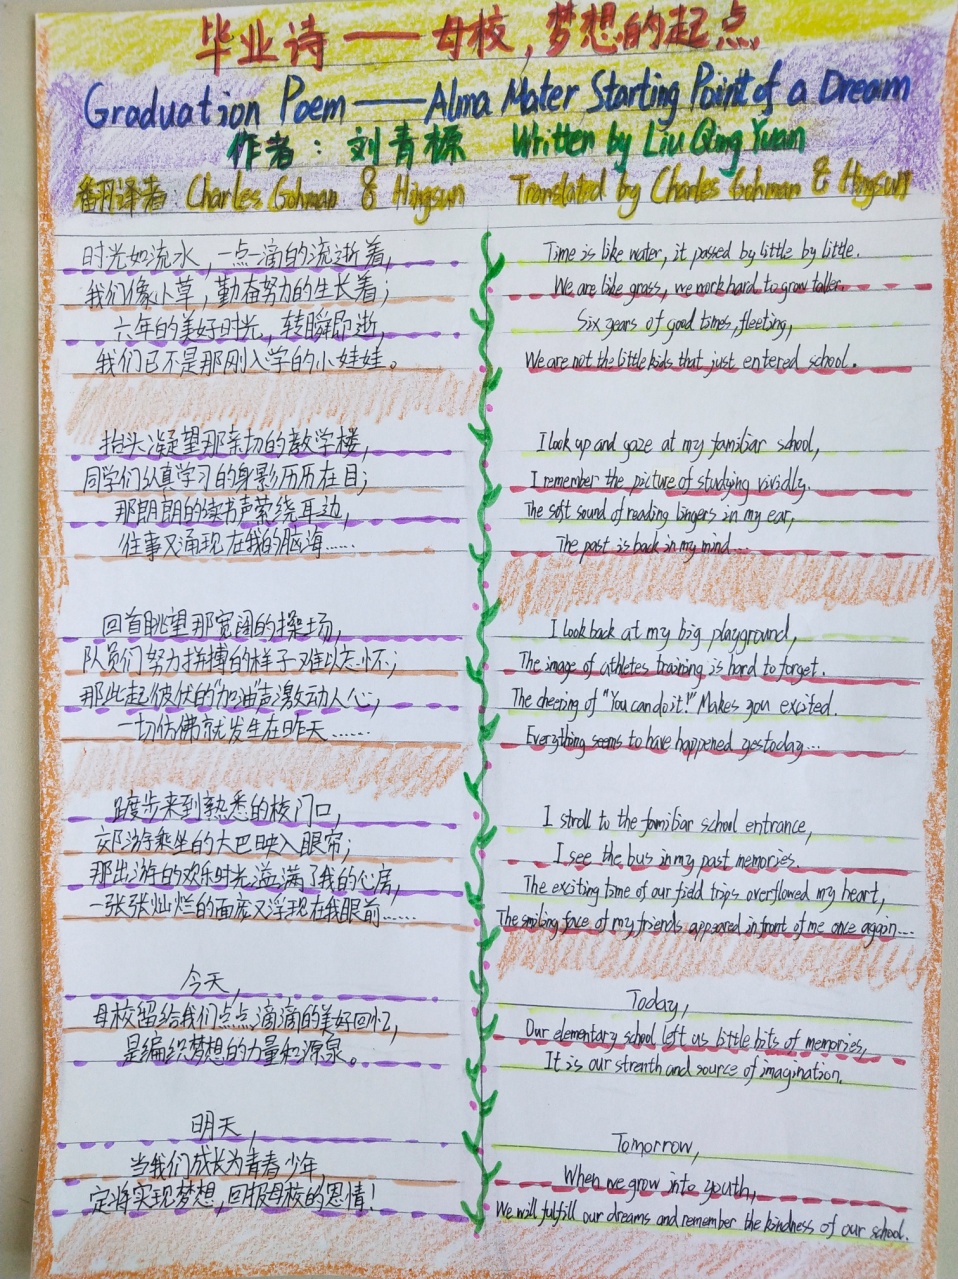 毕业诗——母校,梦想的起点
Graduation Poem——Alma Mater Starting Point of a Dream
作者:刘青榞 Written by Liu Qing Yuan
翻译者:Charles Gohman & Hingsun Translated by Charles Gohman & Hingsun
时光如流水,一点一滴的流逝着,
我们像小草,勤奋努力的生长着;
六年的美好时光,转瞬即逝,
我们已不是那刚入学的小娃娃。
抬头凝望那亲切的教学楼,
同学们认真学习的身影历历在目;
那朗朗的读书声萦绕耳边,
往事又涌现在我的脑海......
回首眺望那宽阔的操场,
队员们努力拼搏的样子难以忘怀;
那此起彼伏的"加油"声激动人心,
一切仿佛就发生在昨天......
踱步来到熟悉的校门口,
郊游乘坐的大巴映入眼帘;
那出游的欢乐时光溢满了我的心房,
一张张灿烂的面庞又浮现在我眼前......
今天,
母校留给我们点点滴滴的美好回忆,
是编织梦想的力量和源泉。
明天,
当我们成长为青春少年,
定将实现梦想,回报母校的恩情!
Time is like water, it passed by little by little.
We are like grass, we work hard to grow taller.
Six years of good times, fleeting,
We are not the little kids that just entered school.
I look up and gaze at my familiar school,
I remember the picture of studying vividly.
The soft sound of reading lingers in my ear,
The past is back in my mind...
I look back at my big playground,
The image of athletes training is hard to forget.
The cheering of "You can do it!" Makes you excited.
Everything seems to have happened yestoday...
I stroll to the familiar school entrance,
I see the bus in my past memories.
The exciting time of our field trips overflowed my heart,
The smiling face of my friends appeared in front of me once again...
Today,
Our elementary school left us little bits of memories,
It is our strenth and source of imagination.
Tomorrow,
When we grow into youth,
We will fulfill our dreams and remember the kindness of our school.